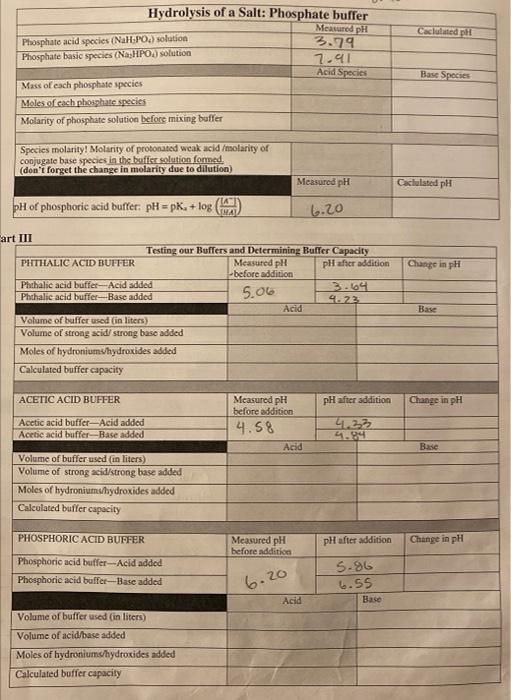 Hydrolysis of a Salt: Phosphate buffer
Measured pH Caclulated pH
Phosphate acid species (NaH₂PO₄) solution 3.79
Phosphate basic species (Na₂HPO₄) solution 7.91
Acid Species Base Species
Mass of each phosphate species
Moles of each phosphate species
Molarity of phosphate solution before mixing buffer
Species molarity! Molarity of protonated weak acid /molarity of
conjugate base species in the buffer solution formed.
(don't forget the change in molarity due to dilution)
Measured pH Caclulated pH
pH of phosphoric acid buffer: pH = pKₐ + log ([A⁻]/[HA]) 6.20
art III
Testing our Buffers and Determining Buffer Capacity
PHTHALIC ACID BUFFER Measured pH before addition pH after addition Change in pH
Phthalic acid buffer—Acid added 5.06 3.64
Phthalic acid buffer—Base added 9.23
Acid Base
Volume of buffer used (in liters)
Volume of strong acid/ strong base added
Moles of hydroniums/hydroxides added
Calculated buffer capacity
ACETIC ACID BUFFER Measured pH before addition pH after addition Change in pH
Acetic acid buffer—Acid added 4.58 4.33
Acetic acid buffer—Base added 4.84
Acid Base
Volume of buffer used (in liters)
Volume of strong acid/strong base added
Moles of hydroniums/hydroxides added
Calculated buffer capacity
PHOSPHORIC ACID BUFFER Measured pH before addition pH after addition Change in pH
Phosphoric acid buffer—Acid added 6.20 5.86
Phosphoric acid buffer—Base added 6.55
Acid Base
Volume of buffer used (in liters)
Volume of acid/base added
Moles of hydroniums/hydroxides added
Calculated buffer capacity